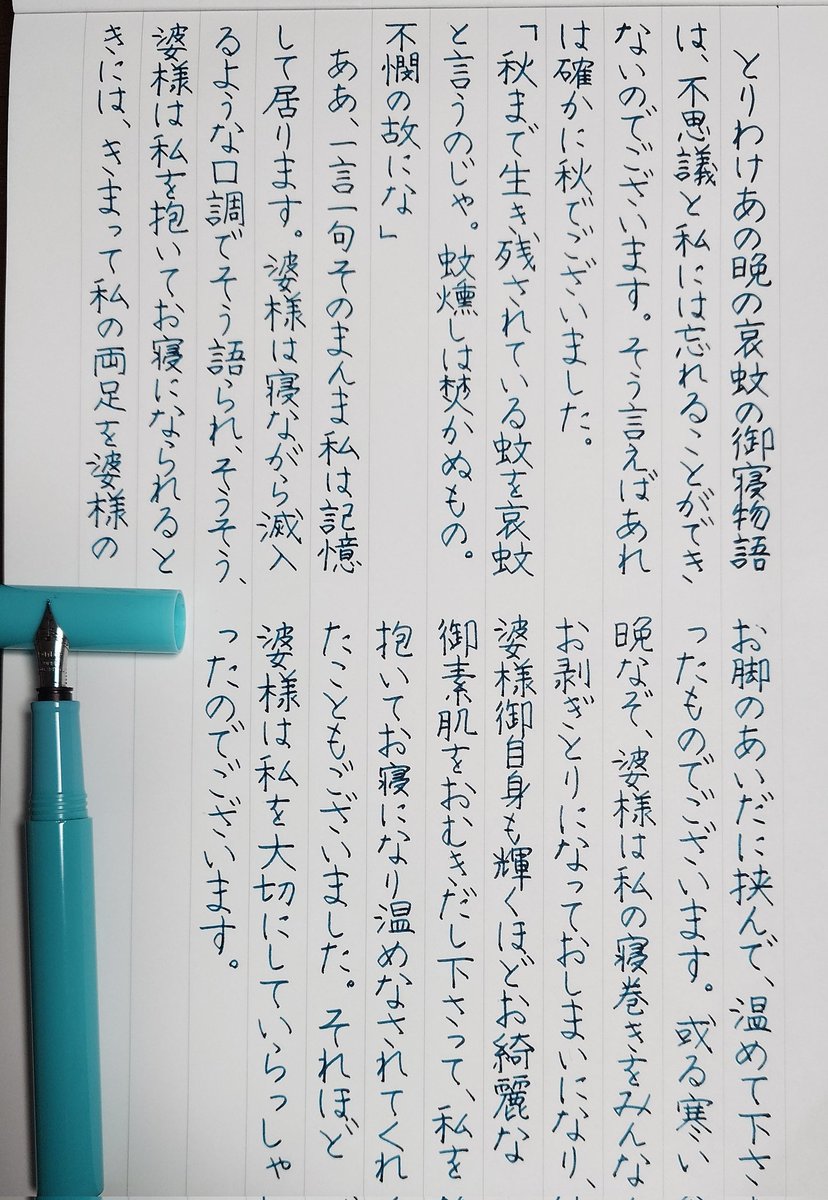 とりわけあの晩の哀蚊の御寝物語
は、不思議と私には忘れることができ
ないのでございます。そう言えばあれ
は確かに秋でございました。
「秋まで生き残されている蚊を哀蚊
と言うのじゃ。蚊燻しは焚かぬもの。
不憫の故にな」
ああ、一言一句そのまんま私は記憶
して居ります。婆様は寝ながら滅入
るような口調でそう語られ、そうそう、
婆様は私を抱いてお寝になられると
きには、きまって私の両足を婆様の
お脚のあいだに挟んで、温めて下さ
ったものでございます。或る寒い
晩なぞ、婆様は私の寝巻きをみんな
お剥ぎとりになっておしまいになり、
婆様御自身も輝くほどお綺麗な
御素肌をおむきだし下さって、私を
抱いてお寝になり温めなされてくれ
たこともございました。それほど
婆様は私を大切にしていらっしゃ
ったのでございます。